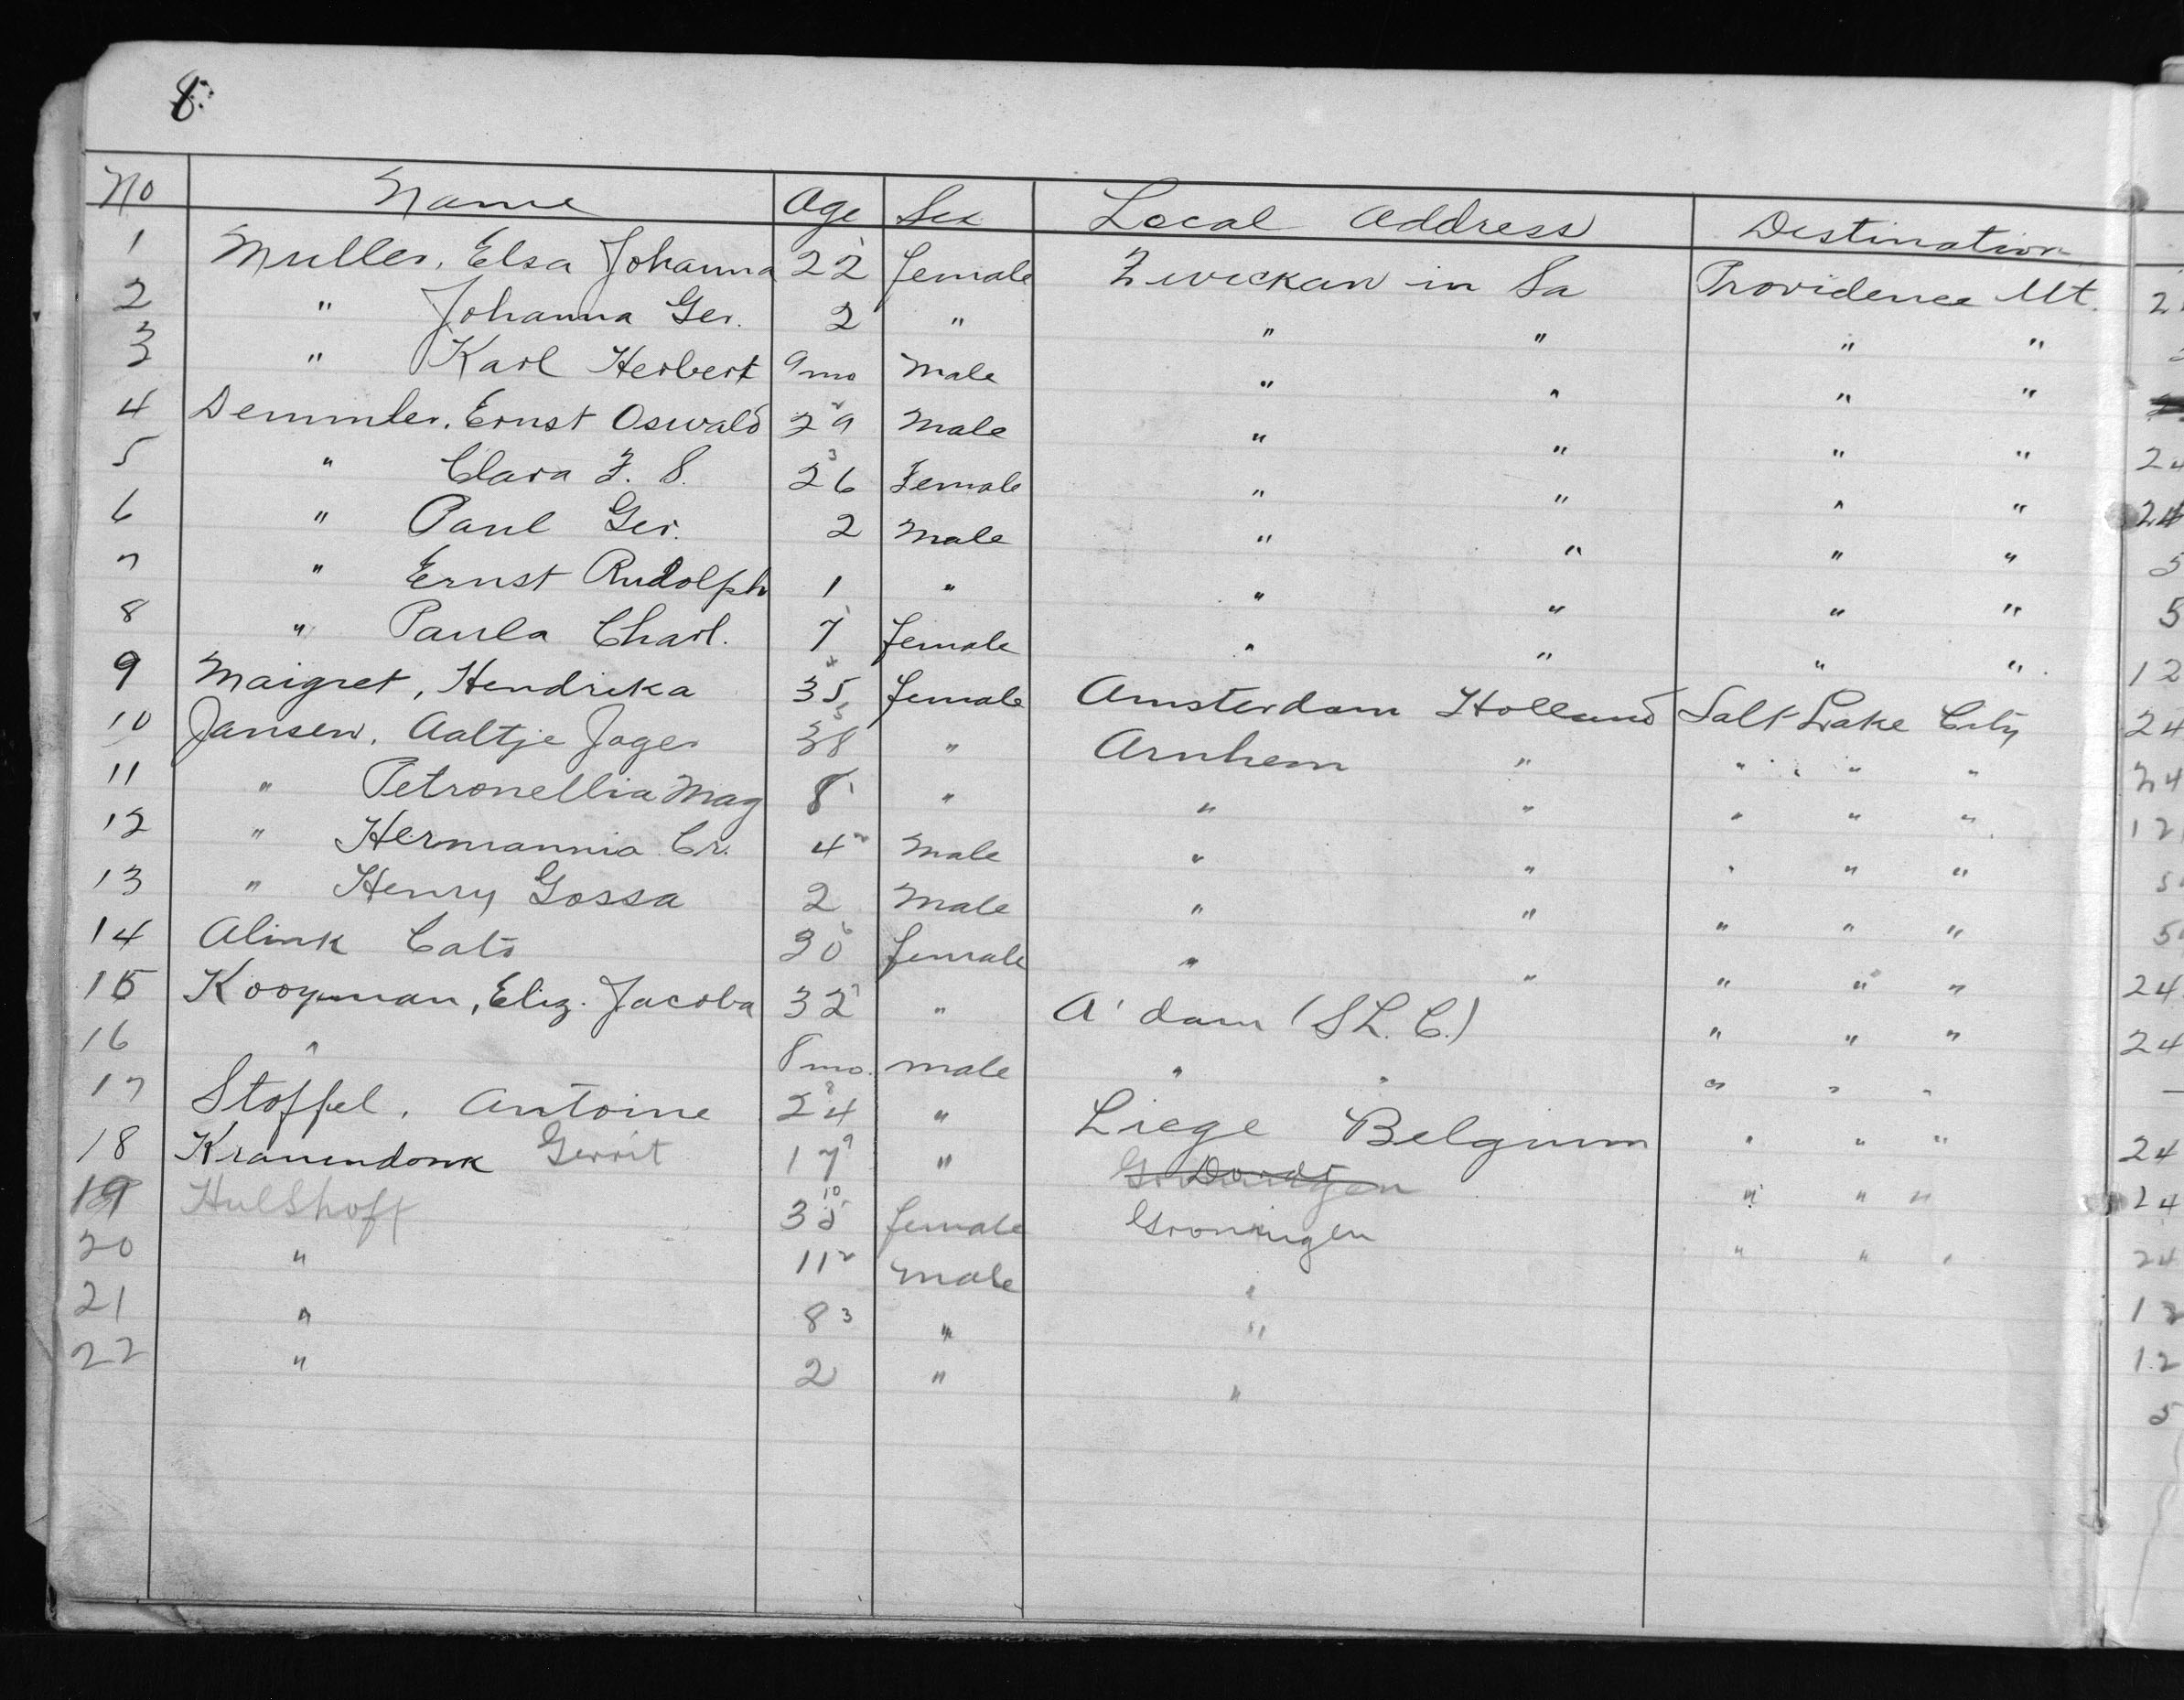 8
No Name Age Sex Local Address Destination
1 Muller, Elsa Johanna 22 1 female Zwickau in Sa Providence Ut.
2 " Johanna Ger. 2 " " " " "
3 " Karl Herbert 9mo Male " " " "
4 Demmler, Ernst Oswald 29 2 Male " " " "
5 " Clara F. S. 26 3 Female " " " " 24
6 " Paul Ger. 2 Male " " " " 24
7 " Ernst Rudolph 1 " " " " " 5
8 " Paula Charl. 7 1 female " " " " 5
9 Maigret, Hendrika 35 4 female Amsterdam Holland Salt Lake City 12
10 Jansen, Aaltje Jager 38 5 " Arnhem " " " " 24
11 " Petronellia Mag 8 1 " " " " " " 24
12 " Hermannia Cr. 4 2 Male " " " " " 12
13 " Henry Gossa 2 Male " " " " " 5
14 Alink Cato 30 6 female " " " " " 5
15 Kooyman, Eliz. Jacoba 32 7 " A'dam (S L. C.) " " " 24
16 " 8mo. male " " " " " 24
17 Stoffel, Antoine 24 8 " Liege Belgium " " "
18 Kranendonk Gerrit 17 9 " Dordt " " " 24
19 Hulshoff 35 10 female Groningen " " " 24
20 " 11 2 male " 24
21 " 8 3 " " 12
22 " 2 " " 12
5